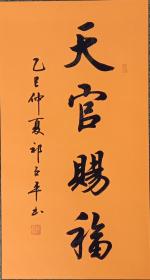 天官賜福
乙巳仲夏祁玉平书